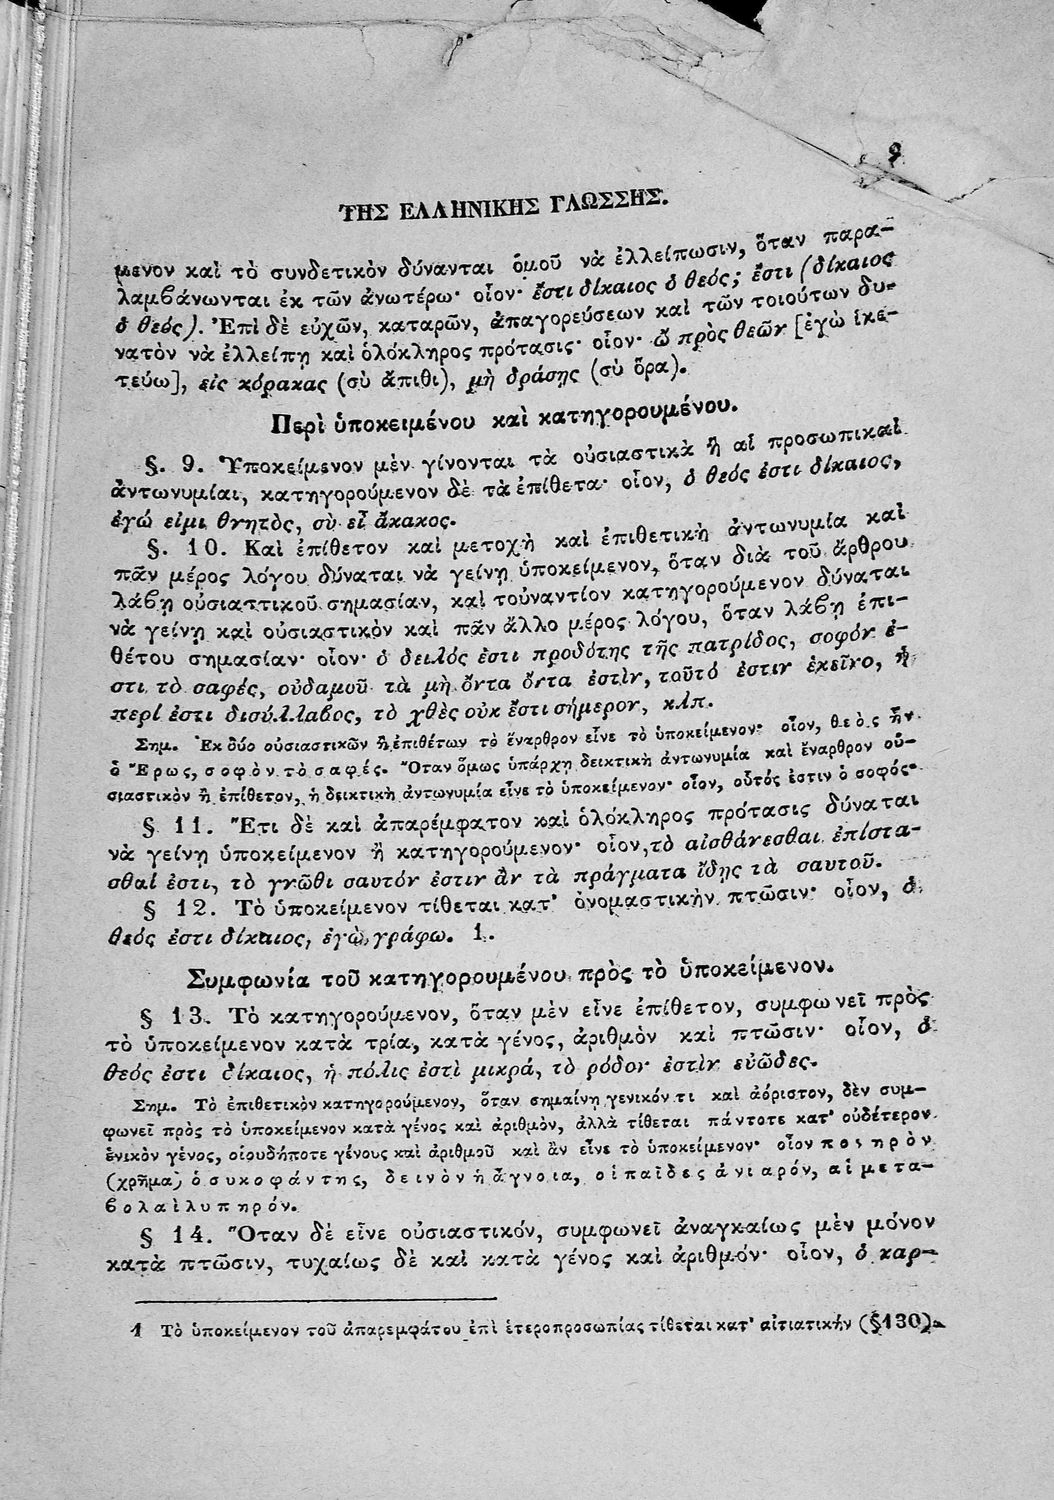 9
ΤΗΣ ΕΛΛΗΝΙΚΗΣ ΓΛΩΣΣΗΣ.
μενον καὶ τὸ συνδετικὸν δύνανται ὁμοῦ νὰ ἐλλείπωσιν, ὅταν παρα-
λαμβάνωνται ἐκ τῶν ἀνωτέρω· οἷον· ἔστι δίκαιος ὁ θεός; ἔστι (δίκαιος
ὁ θεός). Ἐπὶ δὲ εὐχῶν, καταρῶν, ἀπαγορεύσεων καὶ τῶν τοιούτων δυ-
νατὸν νὰ ἐλλείπῃ καὶ ὁλόκληρος πρότασις· οἷον· ὦ πρὸς θεῶν [ἐγὼ ἱκε-
τεύω], εἰς κόρακας (σὺ ἄπιθι), μὴ δράσῃς (σὺ ὅρα).
Περὶ ὑποκειμένου καὶ κατηγορουμένου.
§. 9. Ὑποκείμενον μὲν γίνονται τὰ οὐσιαστικὰ ἢ αἱ προσωπικαὶ
ἀντωνυμίαι, κατηγορούμενον δὲ τὰ ἐπίθετα· οἷον, ὁ θεός ἐστι δίκαιος,
ἐγώ εἰμι θνητὸς, σὺ εἶ ἄκακος.
§. 10. Καὶ ἐπίθετον καὶ μετοχὴ καὶ ἐπιθετικὴ ἀντωνυμία καὶ
πᾶν μέρος λόγου δύναται νὰ γείνῃ ὑποκείμενον, ὅταν διὰ τοῦ ἄρθρου
λάβῃ οὐσιαστικοῦ σημασίαν, καὶ τοὐναντίον κατηγορούμενον δύναται
νὰ γείνῃ καὶ οὐσιαστικὸν καὶ πᾶν ἄλλο μέρος λόγου, ὅταν λάβῃ ἐπι-
θέτου σημασίαν· οἷον· ὁ δειλός ἐστι προδότης τῆς πατρίδος, σοφόν ἐ-
στι τὸ σαφές, οὐδαμοῦ τὰ μὴ ὄντα ὄντα ἐστὶν, ταῦτό ἐστιν ἐκεῖνο, ἡ
περί ἐστι δισύλλαβος, τὸ χθὲς οὐκ ἔστι σήμερον, κλπ.
Σημ. Ἐκ δύο οὐσιαστικῶν ἢ ἐπιθέτων τὸ ἔναρθρον εἶνε τὸ ὑποκείμενον· οἷον, θεὸς ἦν
ὁ Ἔρως, σοφὸν τὸ σαφές. Ὅταν ὅμως ὑπάρχῃ δεικτικὴ ἀντωνυμία καὶ ἔναρθρον οὐ-
σιαστικὸν ἢ ἐπίθετον, ἡ δεικτικὴ ἀντωνυμία εἶνε τὸ ὑποκείμενον· οἷον, οὗτός ἐστιν ὁ σοφός·
§ 11. Ἔτι δὲ καὶ ἀπαρέμφατον καὶ ὁλόκληρος πρότασις δύναται
νὰ γείνῃ ὑποκείμενον ἢ κατηγορούμενον· οἷον, τὸ αἰσθάνεσθαι ἐπίστα-
σθαί ἐστι, τὸ γνῶθι σαυτόν ἐστιν ἂν τὰ πράγματα ἴδῃς τὰ σαυτοῦ.
§ 12. Τὸ ὑποκείμενον τίθεται κατ' ὀνομαστικὴν πτῶσιν· οἷον, ὁ
θεός ἐστι δίκαιος, ἐγὼ γράφω. 1.
Συμφωνία τοῦ κατηγορουμένου πρὸς τὸ ὑποκείμενον.
§ 13. Τὸ κατηγορούμενον, ὅταν μὲν εἶνε ἐπίθετον, συμφωνεῖ πρὸς
τὸ ὑποκείμενον κατὰ τρία, κατὰ γένος, ἀριθμὸν καὶ πτῶσιν· οἷον, ὁ
θεός ἐστι δίκαιος, ἡ πόλις ἐστὶ μικρά, τὸ ῥόδον ἐστὶν εὐῶδες.
Σημ. Τὸ ἐπιθετικὸν κατηγορούμενον, ὅταν σημαίνῃ γενικόν τι καὶ ἀόριστον, δὲν συμ-
φωνεῖ πρὸς τὸ ὑποκείμενον κατὰ γένος καὶ ἀριθμὸν, ἀλλὰ τίθεται πάντοτε κατ' οὐδέτερον
ἑνικὸν γένος, οἱουδήποτε γένους καὶ ἀριθμοῦ καὶ ἂν εἶνε τὸ ὑποκείμενον· οἷον πονηρὸν
(χρῆμα) ὁ συκοφάντης, δεινὸν ἡ ἄγνοια, οἱ παῖδες ἀνιαρόν, αἱ μετα-
βολαὶ λυπηρόν.
§ 14. Ὅταν δὲ εἶνε οὐσιαστικόν, συμφωνεῖ ἀναγκαίως μὲν μόνον
κατὰ πτῶσιν, τυχαίως δὲ καὶ κατὰ γένος καὶ ἀριθμόν· οἷον, ὁ καρ-
1 Τὸ ὑποκείμενον τοῦ ἀπαρεμφάτου ἐπὶ ἑτεροπροσωπίας τίθεται κατ' αἰτιατικήν (§130).